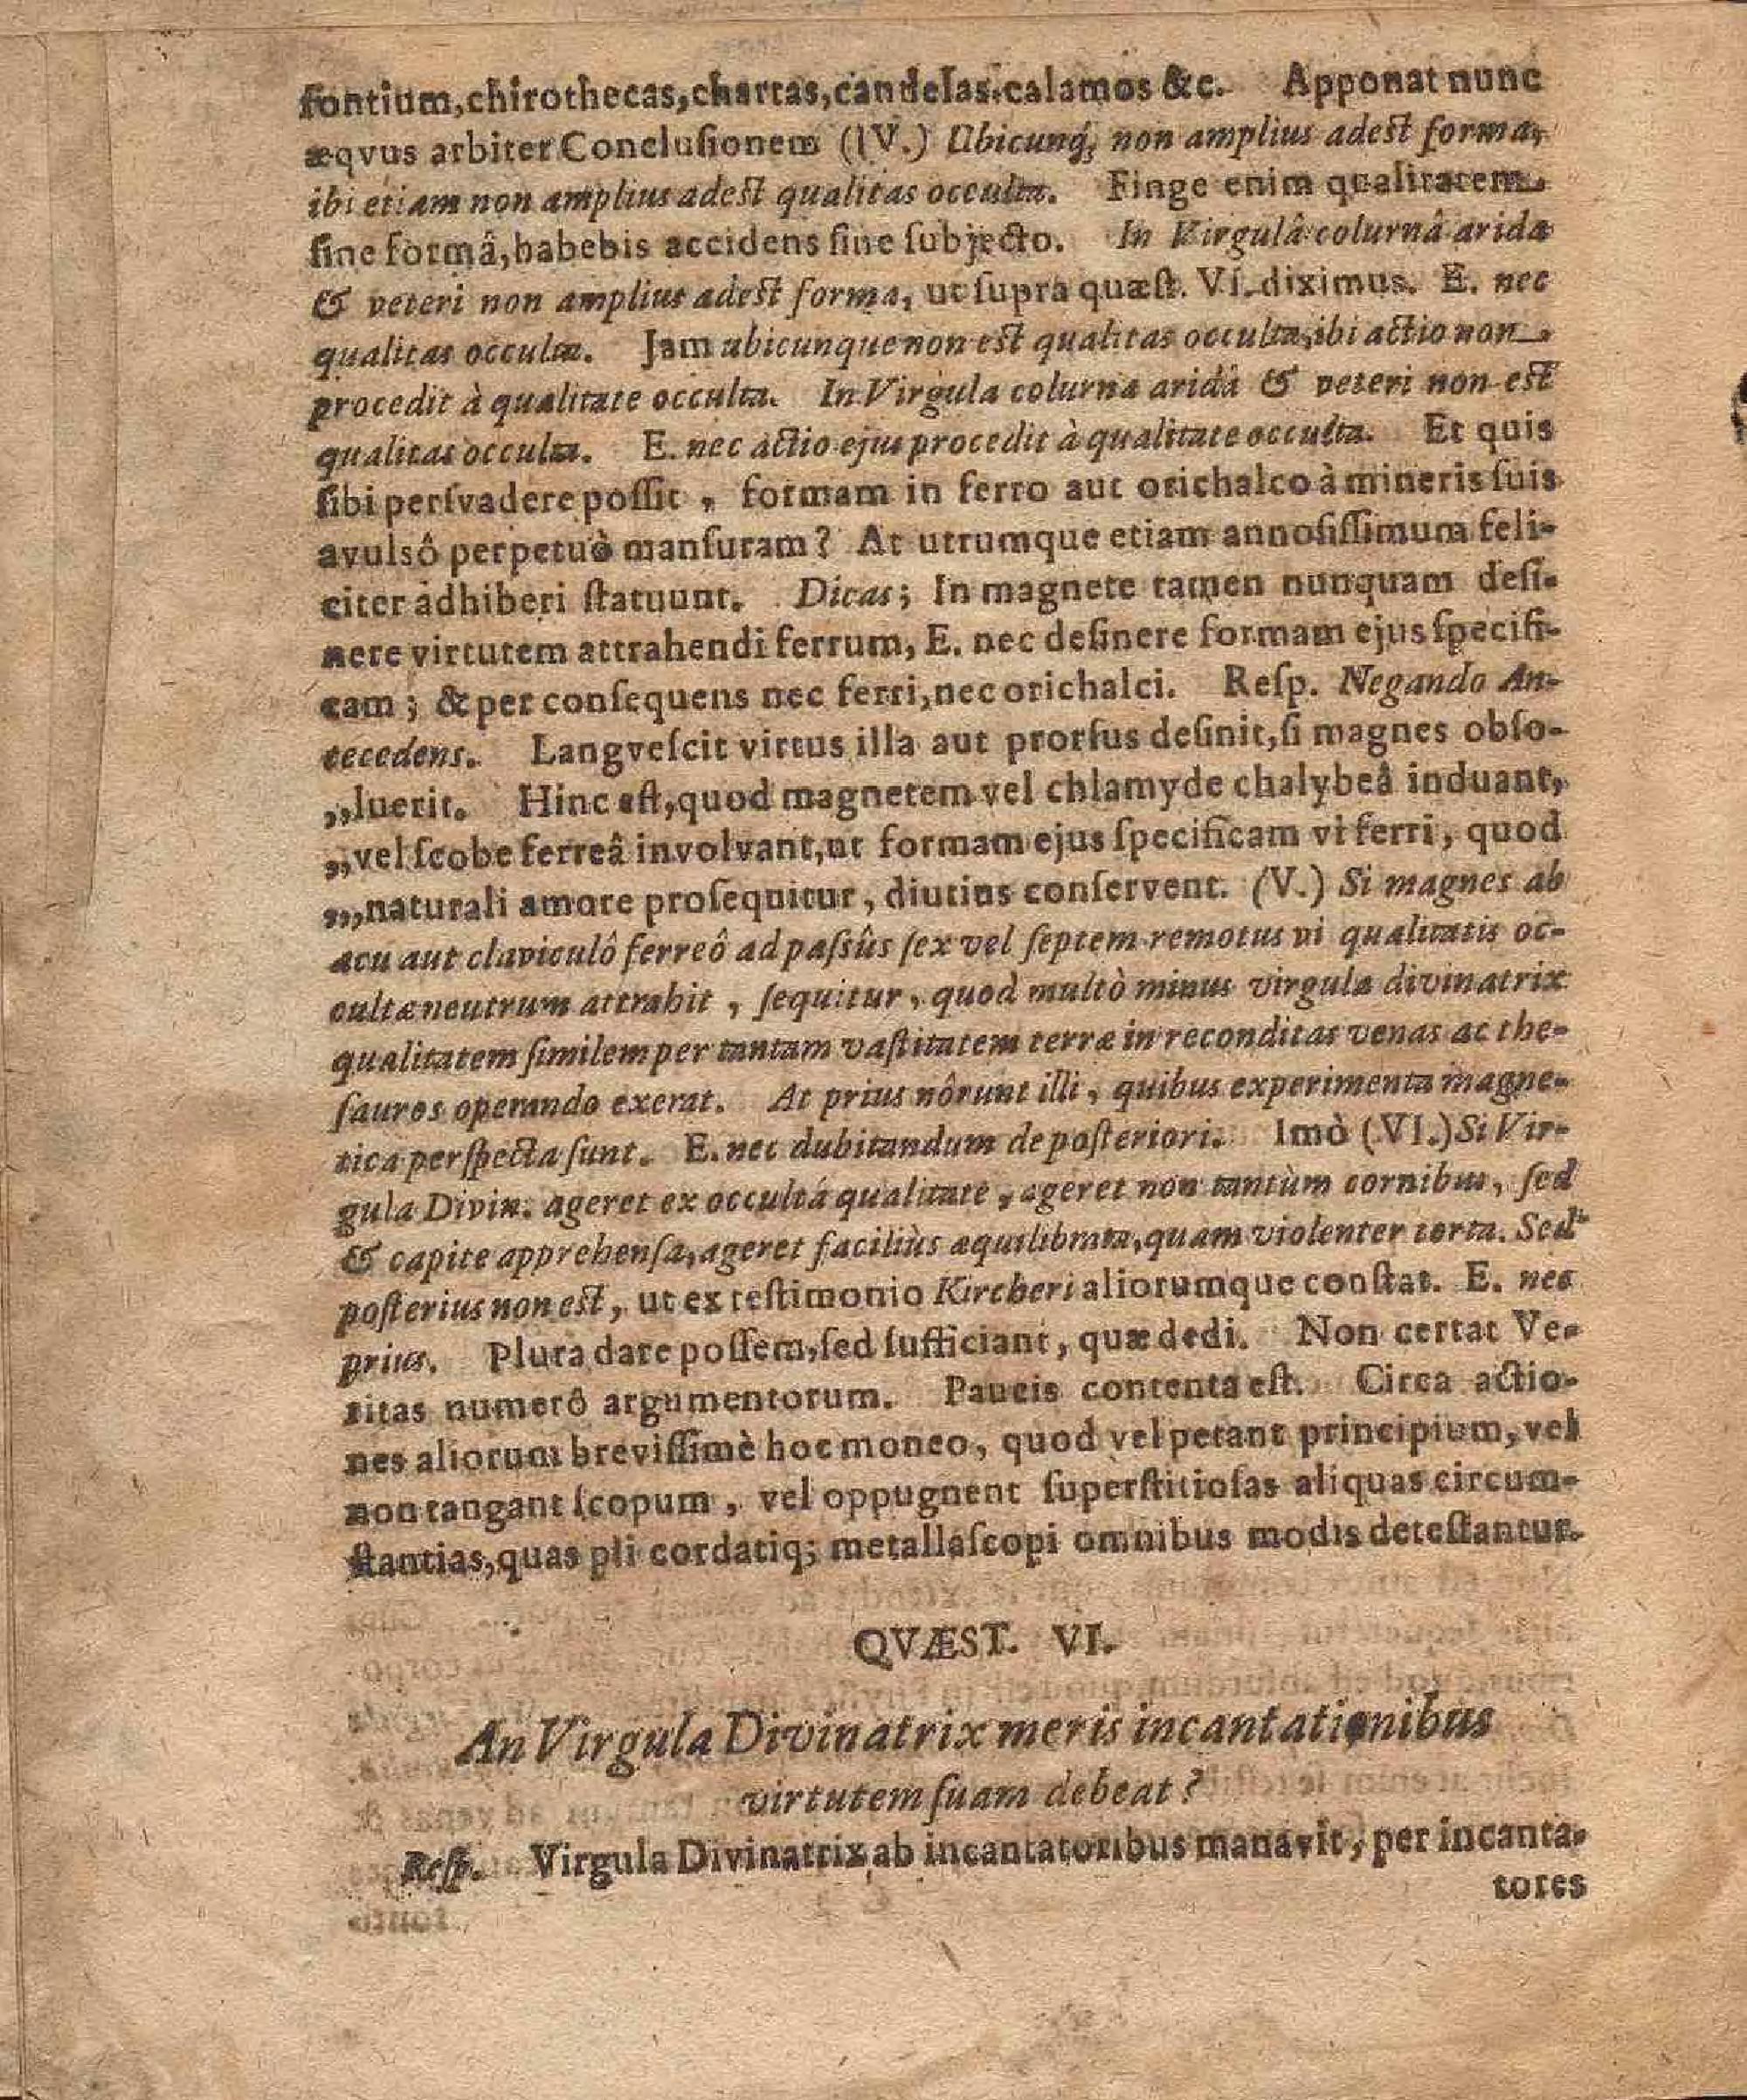 fontium, chirothecas, chartas, candelas, calamos &c. Apponat nunc
æqvus arbiter Conclusionem (IV.) Ubicunq; non amplius adest forma,
ibi etiam non amplius adest qualitas occulta. Finge enim qualitatem
sine formâ, habebis accidens sine subjecto. In Virgulâ colurnâ aridâ
& veteri non amplius adest forma, ut supra quæst. VI. diximus. E. nec
qualitas occulta. Jam ubicunque non est qualitas occulta, ibi actio non
procedit à qualitate occulta. In Virgula colurna aridâ & veteri non est
qualitas occulta. E. nec actio ejus procedit à qualitate occulta. Et quis
sibi persvadere possit, formam in ferro aut orichalco à mineris suis
avulsô perpetuò mansuram? At utrumque etiam annosissimum feli-
citer adhiberi statuunt. Dicas; In magnete tamen nunquam desi-
nere virtutem attrahendi ferrum, E. nec desinere formam ejus specifi-
cam; & per consequens nec ferri, nec orichalci. Resp. Negando An-
tecedens. Langvescit virtus illa aut prorsus desinit, si magnes obso-
,,luerit. Hinc est, quod magnetem vel chlamyde chalybeâ induant,
,,vel scobe ferreâ involvant, ut formam ejus specificam vi ferri, quod
,,,naturali amore prosequitur, diutius conservent. (V.) Si magnes ab
acu aut claviculô ferreô ad passûs sex vel septem remotus vi qualitatis oc-
cultæ neutrum attrahit, sequitur, quod multò minus virgula divinatrix
qualitatem similem per tantam vastitatem terræ in reconditas venas ac the-
sauros operando exerat. At prius nôrunt illi, quibus experimenta magne-
tica perspecta sunt. E. nec dubitandum de posteriori. Imò (VI.) Si Vir-
gula Divin. ageret ex occultâ qualitate, ageret non tantùm cornibus, sed
& capite apprehensa, ageret faciliùs æquilibrata, quam violenter torta. Sed
posterius non est, ut ex testimonio Kircheri aliorumque constat. E. nec
prius. Plura dare possem, sed sufficiant, quæ dedi. Non certat Ve-
ritas numerô argumentorum. Paucis contenta est. Circa actio-
nes aliorum brevissimè hoc moneo, quod vel petant principium, vel
non tangant scopum, vel oppugnent superstitiosas aliquas circum-
stantias, quas pii cordatiq; metallascopi omnibus modis detestantur.
QVÆST. VI.
An Virgula Divinatrix meris incantationibus
virtutem suam debeat?
Resp. Virgula Divinatrix ab incantatoribus manavit, per incanta-
tores